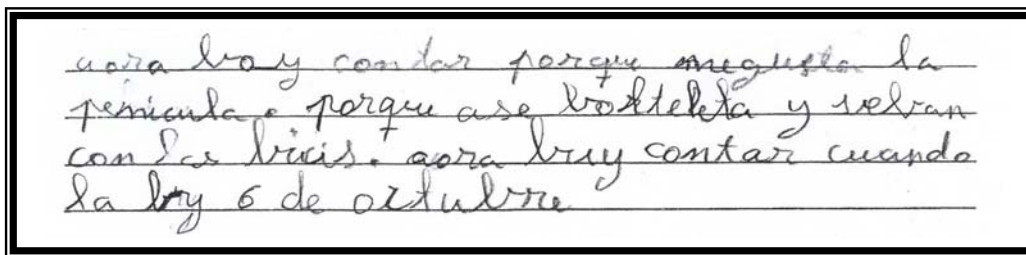 aora boy contar porque megusta la
penicula. porque ase bolteleta y selvan
con las bicis. aora buy contar cuando
la by 6 de octubre